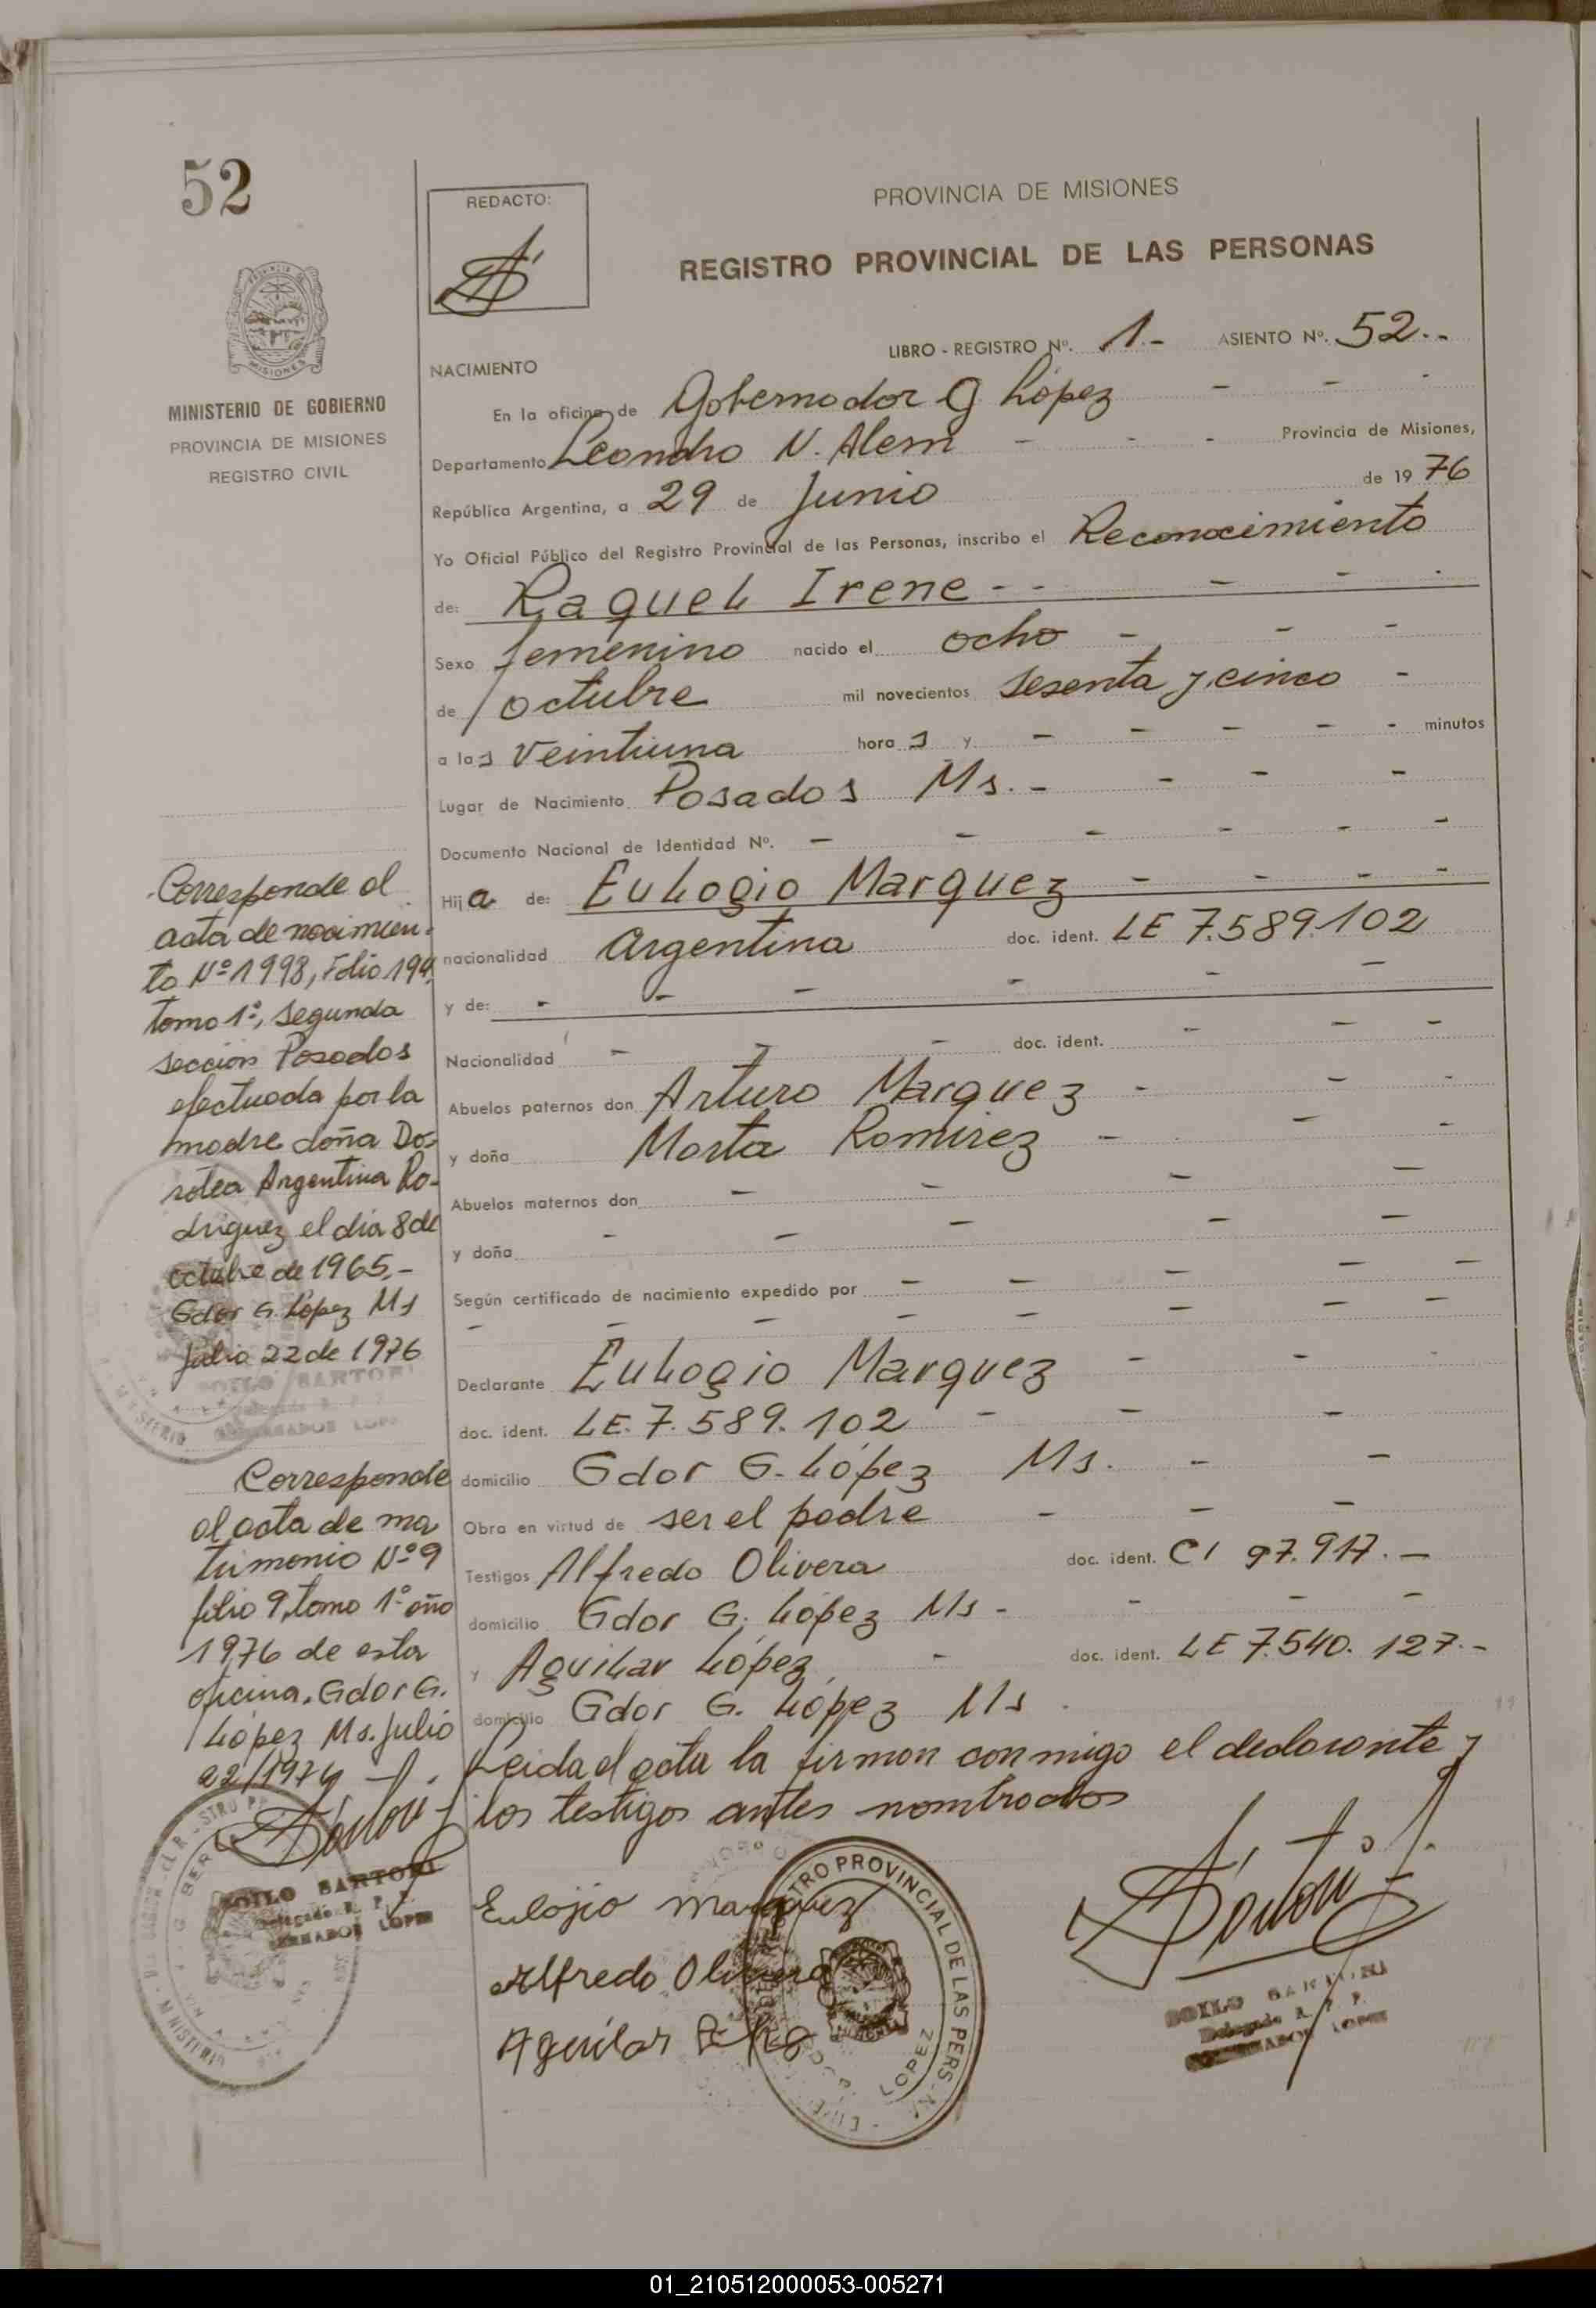 52
REDACTO:
PROVINCIA DE MISIONES
REGISTRO PROVINCIAL DE LAS PERSONAS
MINISTERIO DE GOBIERNO
PROVINCIA DE MISIONES
REGISTRO CIVIL
LIBRO - REGISTRO Nº. 1.- ASIENTO Nº. 52.-
NACIMIENTO
En la oficina de Gobernador G López - - -
Departamento Leandro N. Alem - - - Provincia de Misiones,
República Argentina, a 29 de Junio de 1976
Yo Oficial Público del Registro Provincial de las Personas, inscribo el Reconocimiento
de: Raquel Irene - - - - -
Sexo femenino nacido el ocho - - -
de octubre mil novecientos sesenta y cinco -
a las veintiuna horas y - - - - - minutos
Lugar de Nacimiento Posadas Ms. - - - -
Documento Nacional de Identidad Nº. - - - - - -
Hija de: Eulogio Marquez - - - -
nacionalidad Argentina doc. ident. LE 7.589.102
y de: - - - - - -
Nacionalidad - - - doc. ident. - - -
Abuelos paternos don Arturo Marquez - - -
y doña Marta Ramirez - - -
Abuelos maternos don - - - -
y doña - - - - -
Según certificado de nacimiento expedido por - - - - -
- - - - - - - -
Declarante Eulogio Marquez - - -
doc. ident. LE. 7.589.102 - - -
domicilio Gdor G. López Ms. - -
Obra en virtud de ser el padre - - -
Testigos Alfredo Olivera doc. ident. CI 97.917.-
domicilio Gdor G. López Ms - - - -
y Aguilar López - doc. ident. LE 7.540.127.-
domicilio Gdor G. López Ms
Leida el acta la firman conmigo el declarante y
los testigos antes nombrados
Eulojio Marquez
Alfredo Olivera
Aguilar
REGISTRO PROVINCIAL DE LAS PERS.
LOPEZ
SOILO SARTORI
Delegado R. P. P.
GOBERNADOR LOPEZ
Corresponde al
acta de nacimien-
to Nº 1998, Folio 194,
tomo 1º, segunda
sección Posadas
efectuada por la
madre doña Do-
rotea Argentina Ro-
driguez el día 8 de
octubre de 1965.-
Gdor G. López Ms
Julio 22 de 1976
SOILO SARTORI
Corresponde
al acta de ma
trimonio Nº 9
folio 9, tomo 1º año
1976 de esta
oficina. Gdor G.
López Ms. Julio
22/1976
SOILO SARTORI
Delegado R. P. P.
GOBERNADOR LOPEZ
01_210512000053-005271